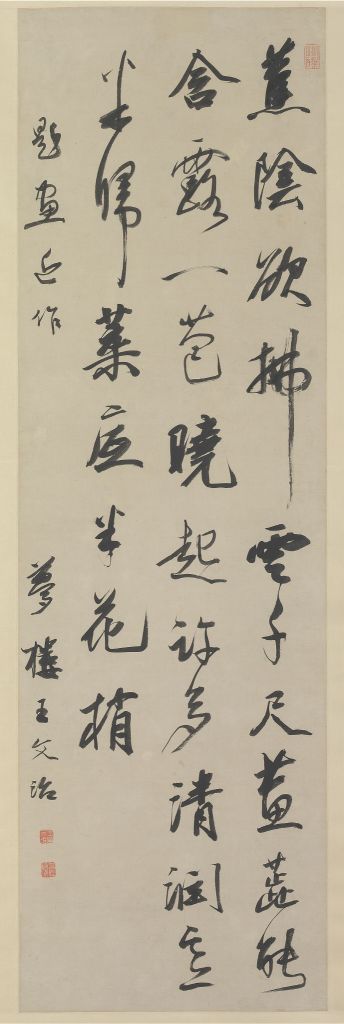 蕉陰欲拂雲千尺蕙蕊能
含露一苞曉起許多清潤意
半歸葉底半花梢
題畫近作　夢樓王文治